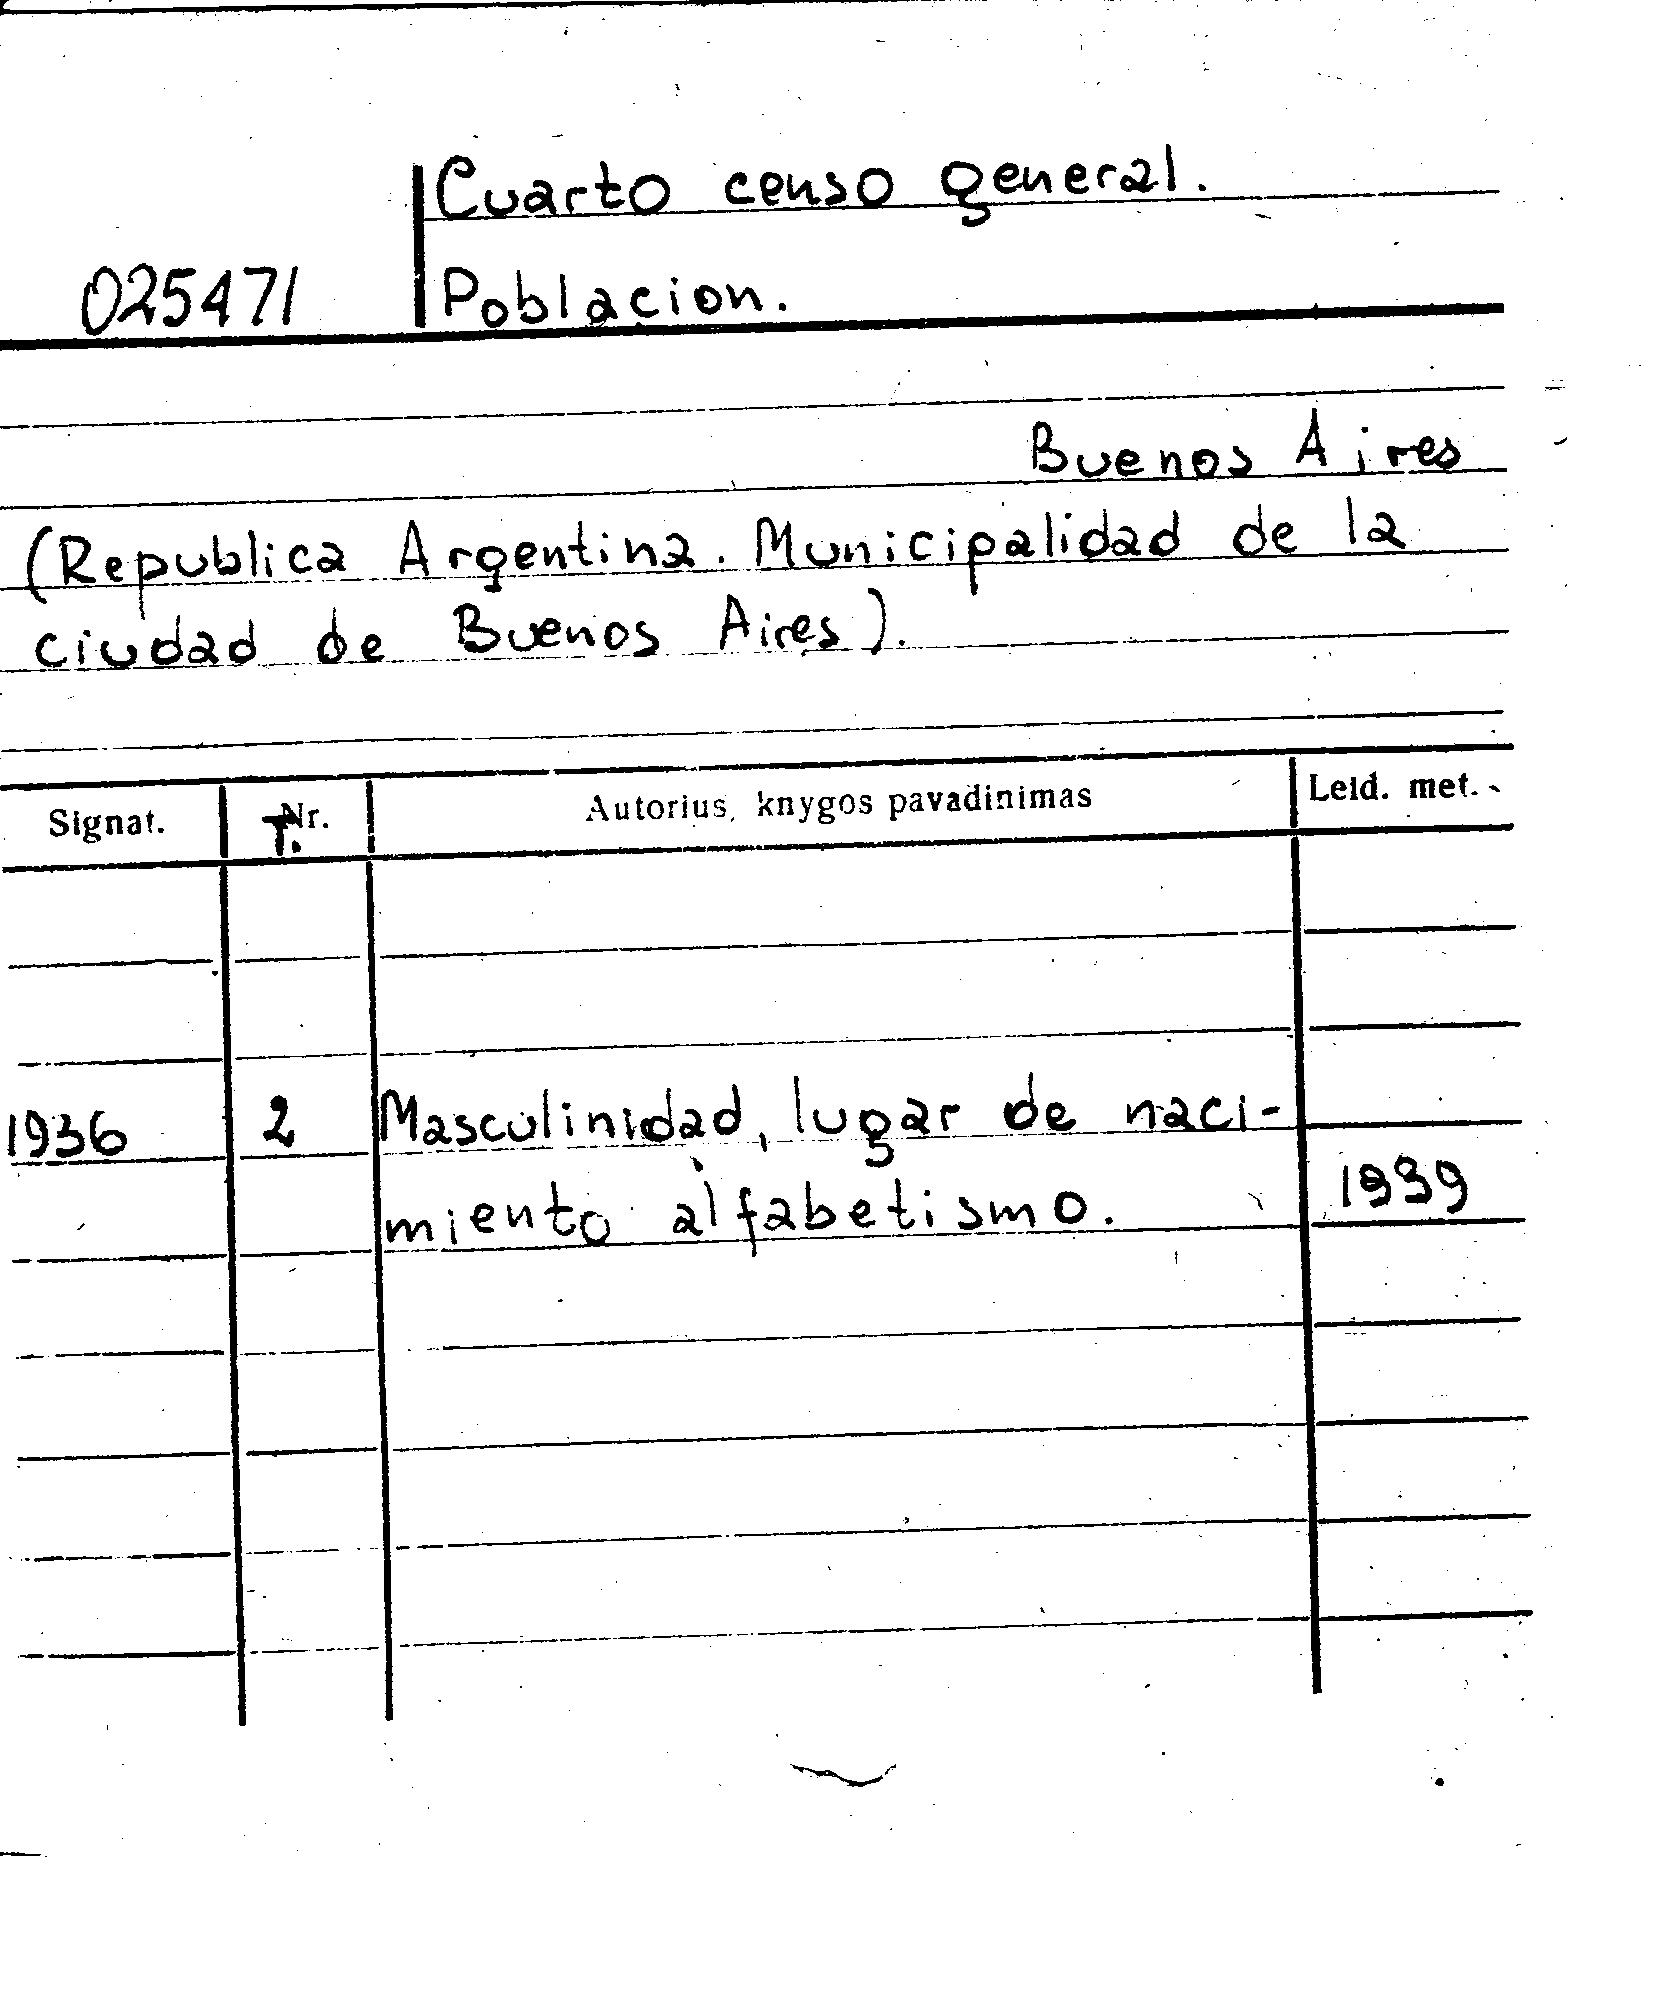 Cuarto censo general.
025471 Poblacion.
Buenos Aires
(Republica Argentina. Municipalidad de la
ciudad de Buenos Aires).
Signat. Nr. T. Autorius, knygos pavadinimas Leid. met.
1936 2 Masculinidad, lugar de naci-
miento alfabetismo. 1939